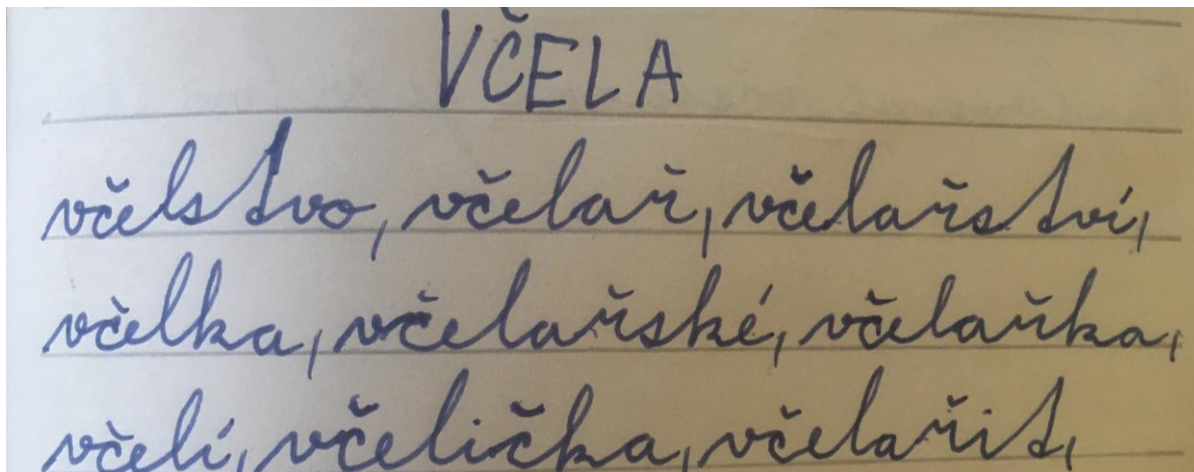 VČELA
včelstvo, včelař, včelařství,
včelka, včelařské, včelařka,
včelí, včelička, včelařit,